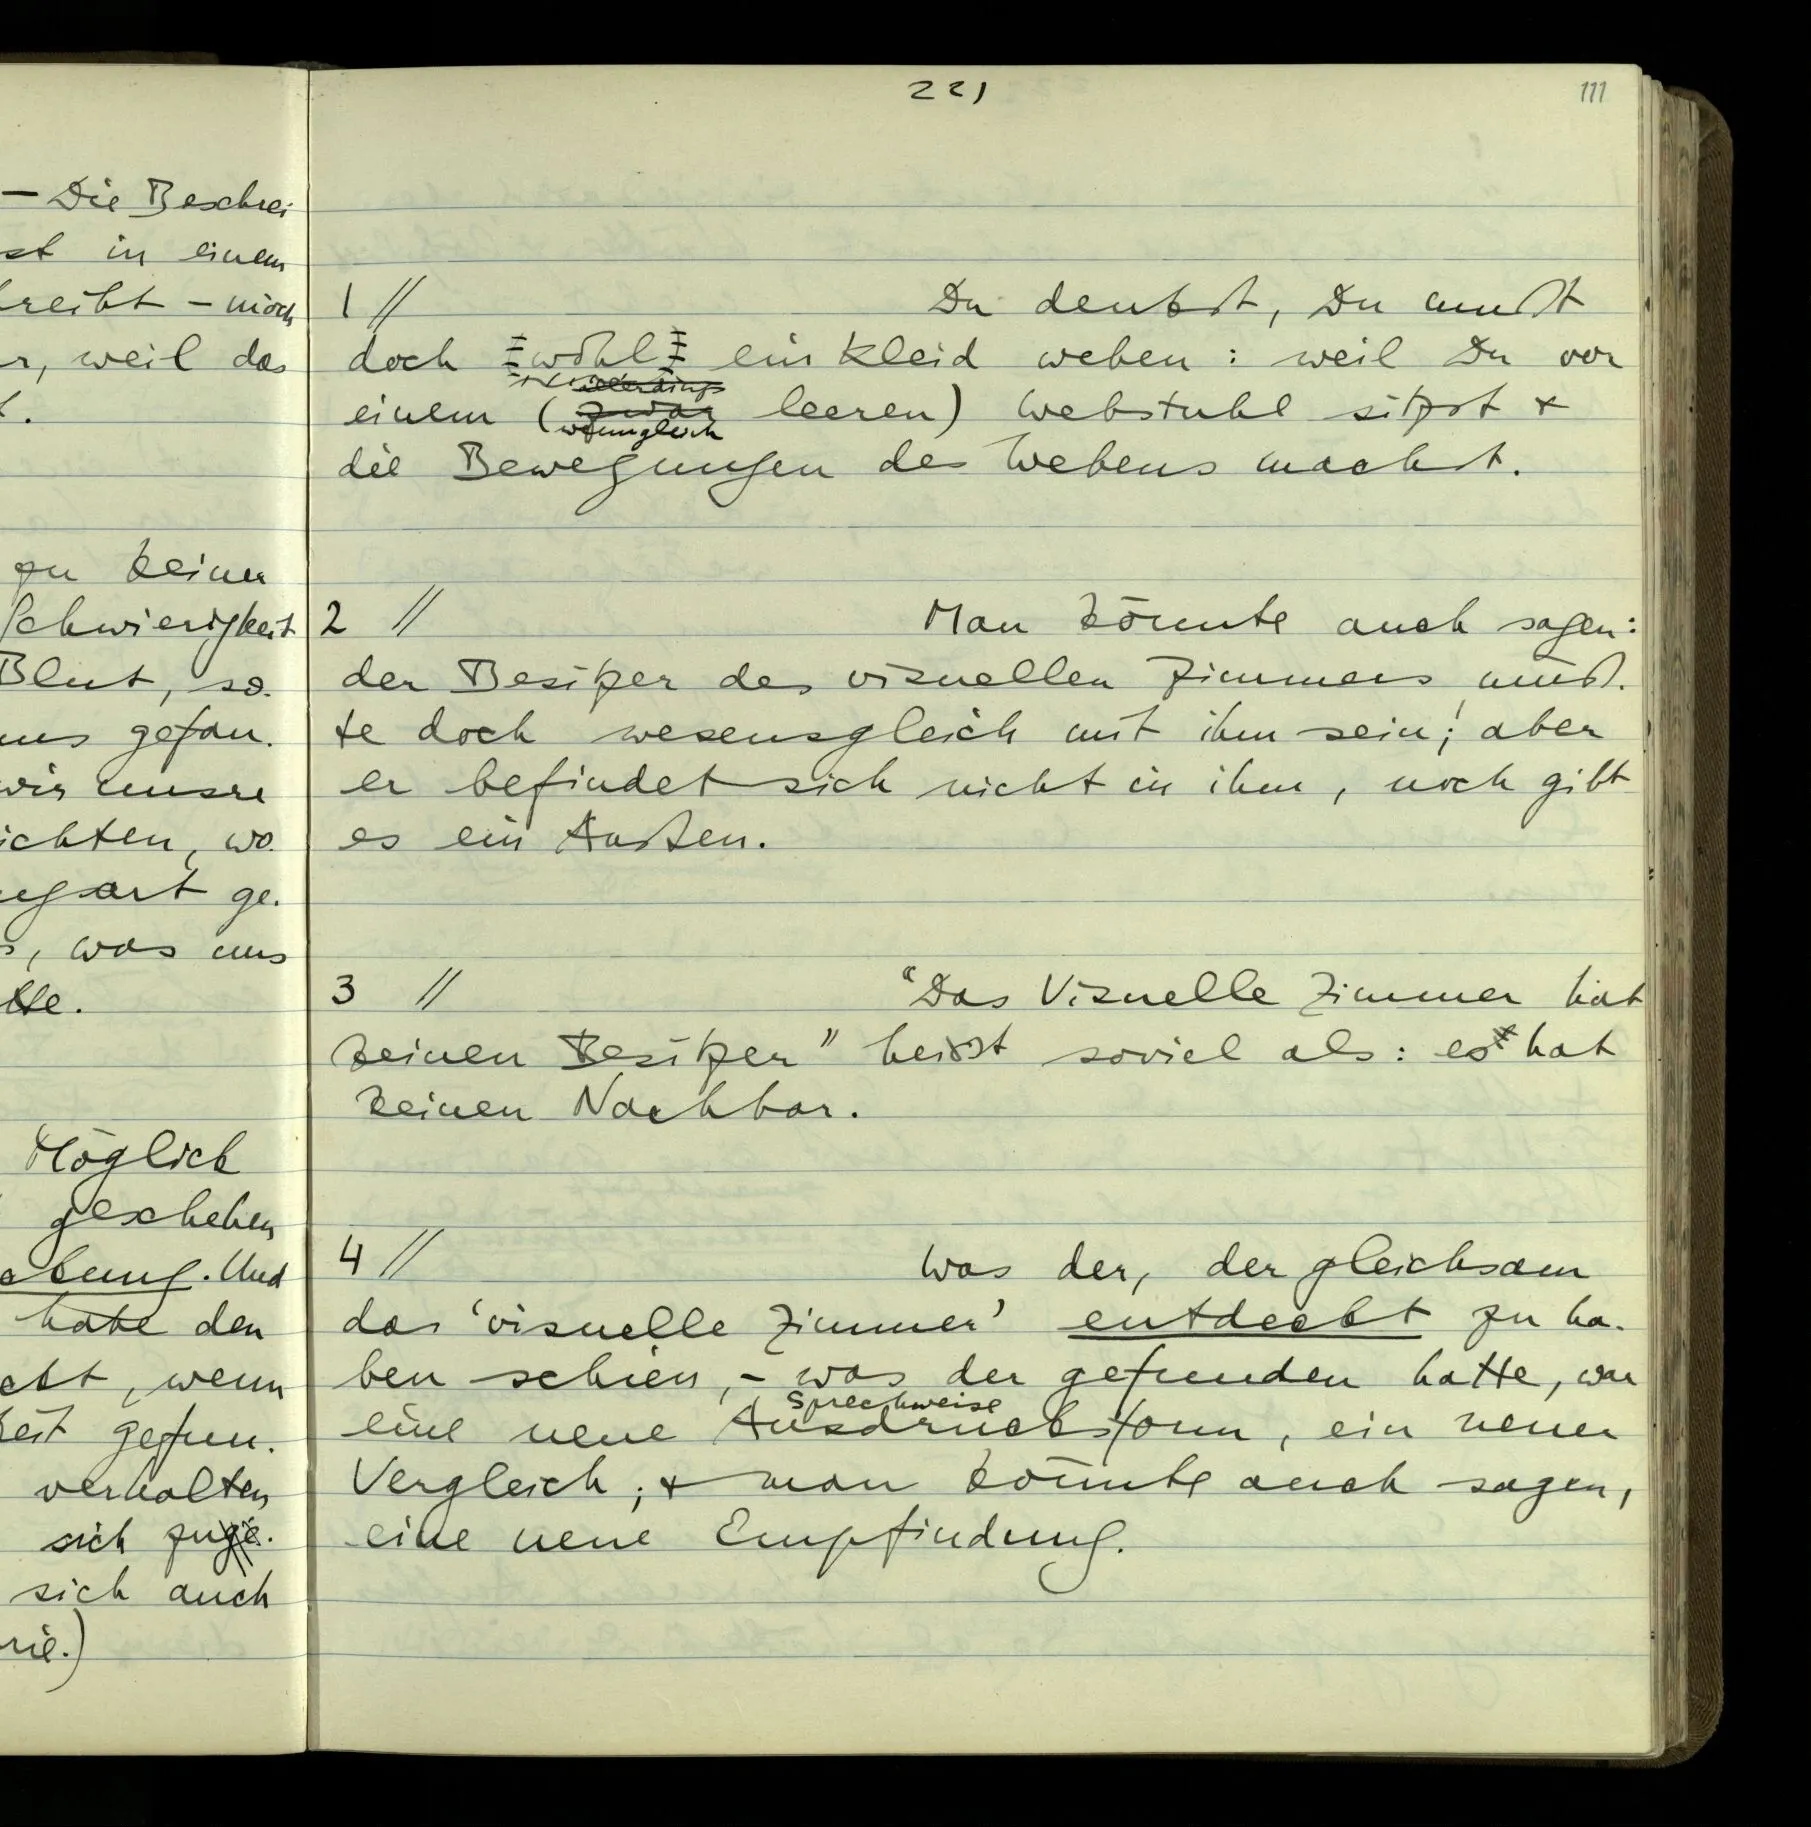 221
111
– Die Beschrei
st in einem
reibt – mach
r, weil das
t.
zu keiner
Schwierigkeit
Blut, so-
uns gefan-
wir unsre
ichten, wo-
ngsart ge-
s, was uns
tte.
Möglich
geschehen
ebung. Und
habe den
ckt, wenn
keit gefun-
verhalten
sich zuge-
sich auch
rie.)
1 // Du denkst, Du mußt
doch wohl ein Kleid weben: weil Du vor
allerdings
einem (zwar leeren) Webstuhl sitzst &
wenngleich
die Bewegungen des Webens machst.
2 // Man könnte auch sagen:
der Besitzer des visuellen Zimmers müß-
te doch wesensgleich mit ihm sein; aber
er befindet sich nicht in ihm, noch gibt
es ein Außen.
3 // "Das Visuelle Zimmer hat
keinen Besitzer" heisst soviel als: es hat
keinen Nachbar.
4 // Was der, der gleichsam
das 'visuelle Zimmer' entdeckt zu ha-
ben schien, – was der gefunden hatte, war
Sprechweise
eine neue Ausdrucksform, ein neuer
Vergleich; & man könnte auch sagen,
eine neue Empfindung.